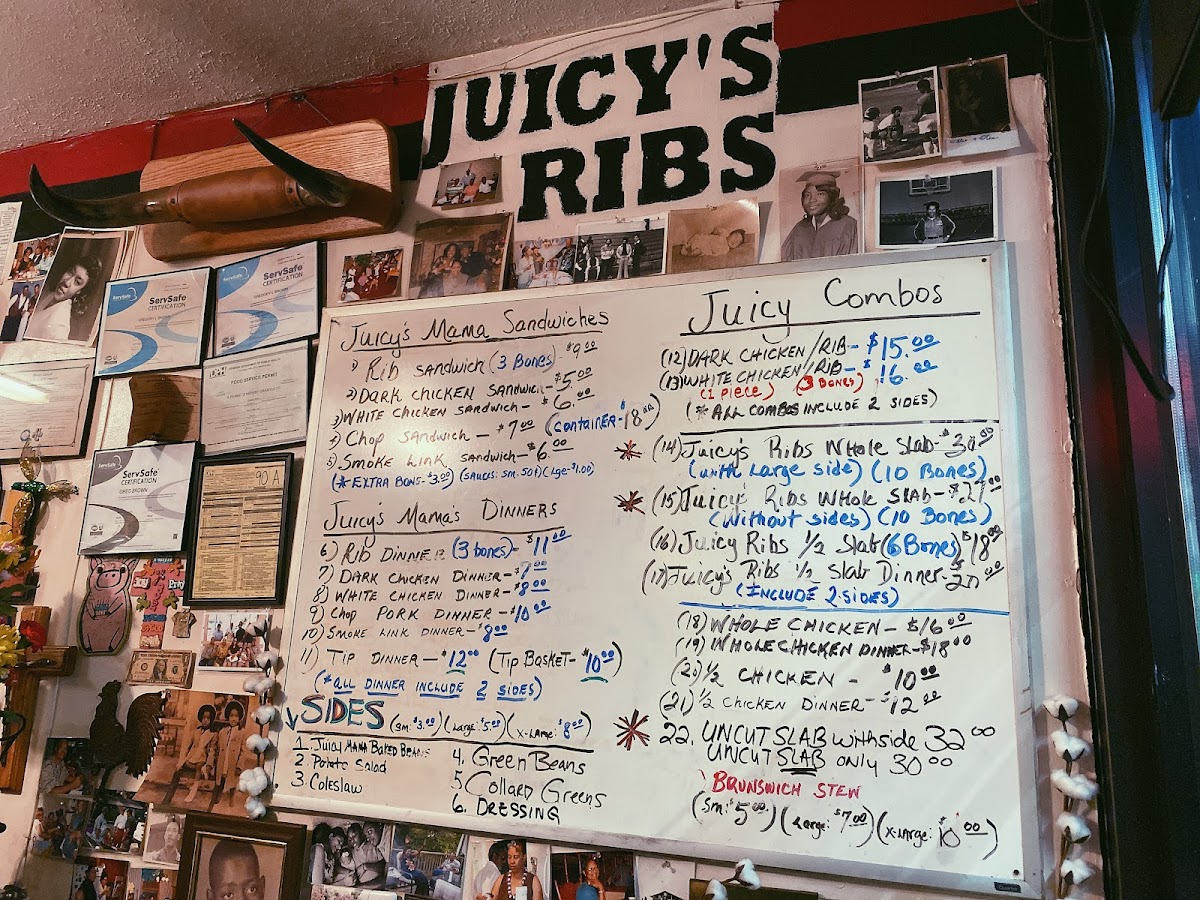 JUICY'S
RIBS
ServSafe
CERTIFICATION
ServSafe
CERTIFICATION
FOOD SERVICE PERMIT
ServSafe
CERTIFICATION
GREG BROWN
90 A
Juicy's Mama Sandwiches
1) Rib Sandwich (3 Bones) - $9.00
2) Dark Chicken Sandwich - $5.00
3) White Chicken Sandwich - $6.00
4) Chop Sandwich - $7.00 (Container - $8.00)
5) Smoke Link Sandwich - $6.00
(*Extra Bons - $3.00) (Sauces: Sm. 50¢) (Lge - $1.00)
Juicy's Mama's Dinners
6) Rib Dinner (3 bones) - $11.00
7) Dark Chicken Dinner - $7.00
8) White Chicken Dinner - $8.00
9) Chop Pork Dinner - $10.00
10) Smoke Link Dinner - $8.00
11) Tip Dinner - $12.00 (Tip Basket - $10.00)
(*All Dinner Include 2 Sides)
SIDES (Sm: $3.00) (Large: $5.00) (X-Large: $8.00)
1. Juicy Mama Baked Beans
2. Potato Salad
3. Coleslaw
4. Green Beans
5 Collard Greens
6. Dressing
Juicy Combos
(12) Dark Chicken/Rib - $15.00
(13) White Chicken/Rib - $16.00
(1 piece) (3 Bones)
(*All Combos Include 2 Sides)
(14) Juicy's Ribs Whole Slab - $30.00
(with Large side) (10 Bones)
(15) Juicy's Ribs Whole Slab - $27.00
(without sides) (10 Bones)
(16) Juicy Ribs 1/2 Slab (6 Bones) $18.00
(17) Juicy's Ribs 1/2 Slab Dinner - $20.00
(Include 2 sides)
(18) Whole Chicken - $16.00
(19) Whole Chicken Dinner - $18.00
(20) 1/2 Chicken - $10.00
(21) 1/2 Chicken Dinner - $12.00
22. Uncut Slab with side 32.00
Uncut Slab only 30.00
Brunswich Stew
(Sm: $5.00) (Large: $7.00) (X-Large: $10.00)